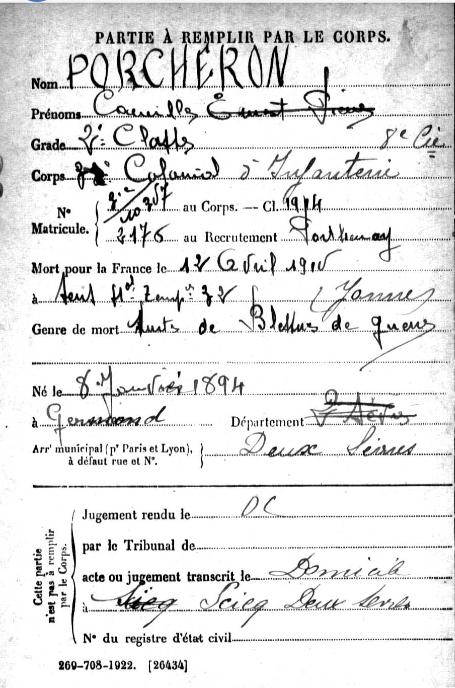 PARTIE À REMPLIR PAR LE CORPS.
Nom PORCHERON
Prénoms Camille Ernest
Grade 2e Classe 8e Cie
Corps Colonial d'Infanterie
N° Matricule. au Corps. — Cl. 1914
2176 au Recrutement Parthenay
Mort pour la France le 12 Avril 1915
à (Yonne)
Genre de mort Suites de Blessures de guerre
Né le 8 Janvier 1894
à Germond Département
Arr' municipal (p' Paris et Lyon), à défaut rue et N°. Deux Sèvres
Cette partie n'est pas à remplir par le Corps.
Jugement rendu le
par le Tribunal de
acte ou jugement transcrit le Domicile
à Sciecq Deux Sèvres
N° du registre d'état civil
269-708-1922. [26434]